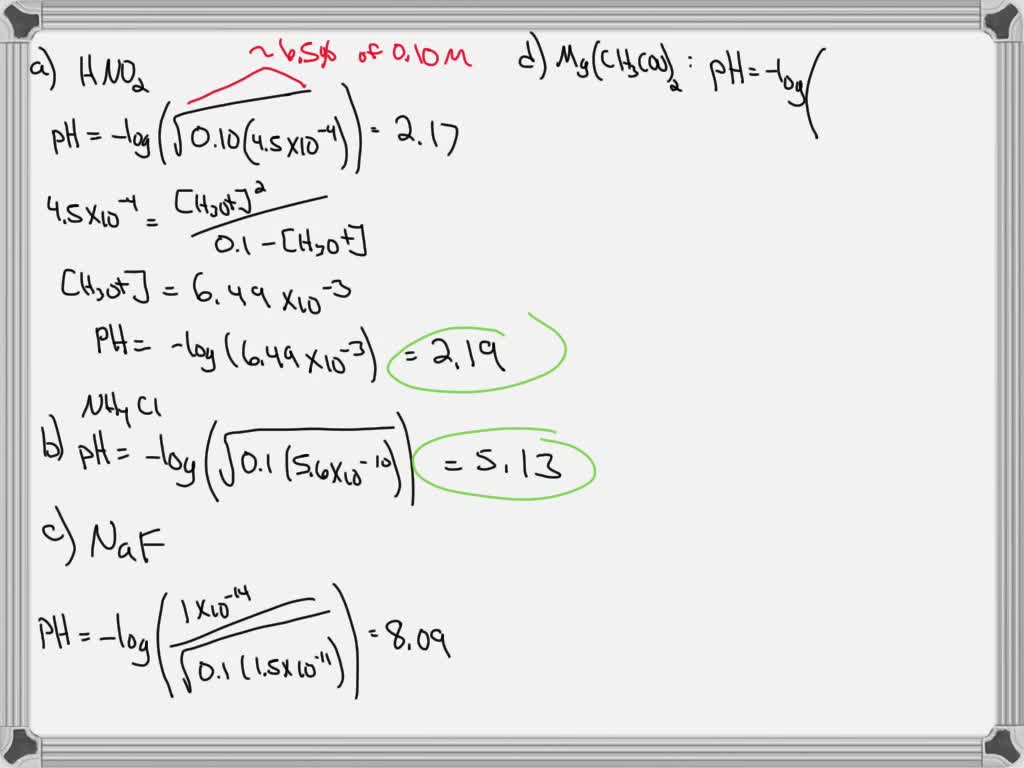 a) HNO₂
~6.5% of 0.10M
pH = -log(√0.10(4.5×10⁻⁴)) = 2.17
4.5×10⁻⁴ = [H₃O⁺]² / 0.1 - [H₃O⁺]
[H₃O⁺] = 6.49 ×10⁻³
PH = -log(6.49×10⁻³) = 2.19
NH₄Cl
b) pH = -log(√0.1(5.6×10⁻¹⁰)) = 5.13
c) NaF
PH = -log(1×10⁻¹⁴ / √0.1(1.5×10⁻¹¹)) = 8.09
d) Mg(CH₃CO₂)₂ : pH = -log(